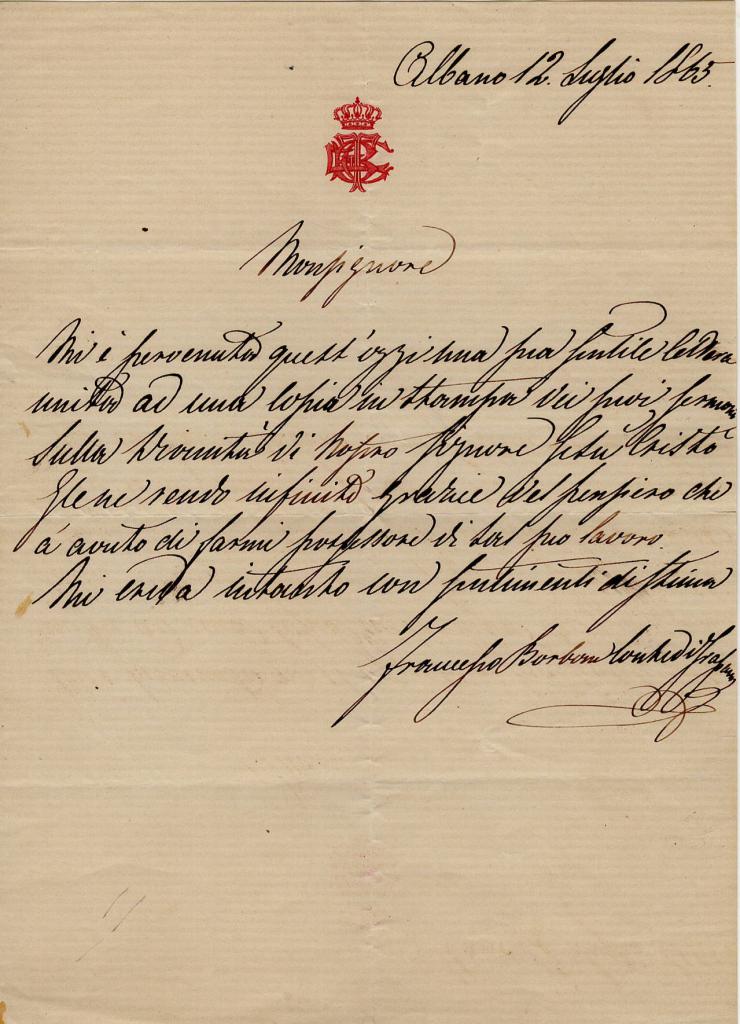 Albano 12. Luglio 1865.
Monsignore
Mi è pervenuta quest'oggi una sua gentile lettera
unita ad una copia in stampa dei suoi sermoni
sulla Divinità di Nostro Signore Gesù Cristo
Glene rendo infinite grazie del pensiero che
à avuto di farmi possessore di tal suo lavoro.
Mi creda intanto con sentimenti di stima
Francesco Borbone Conte di Trapani